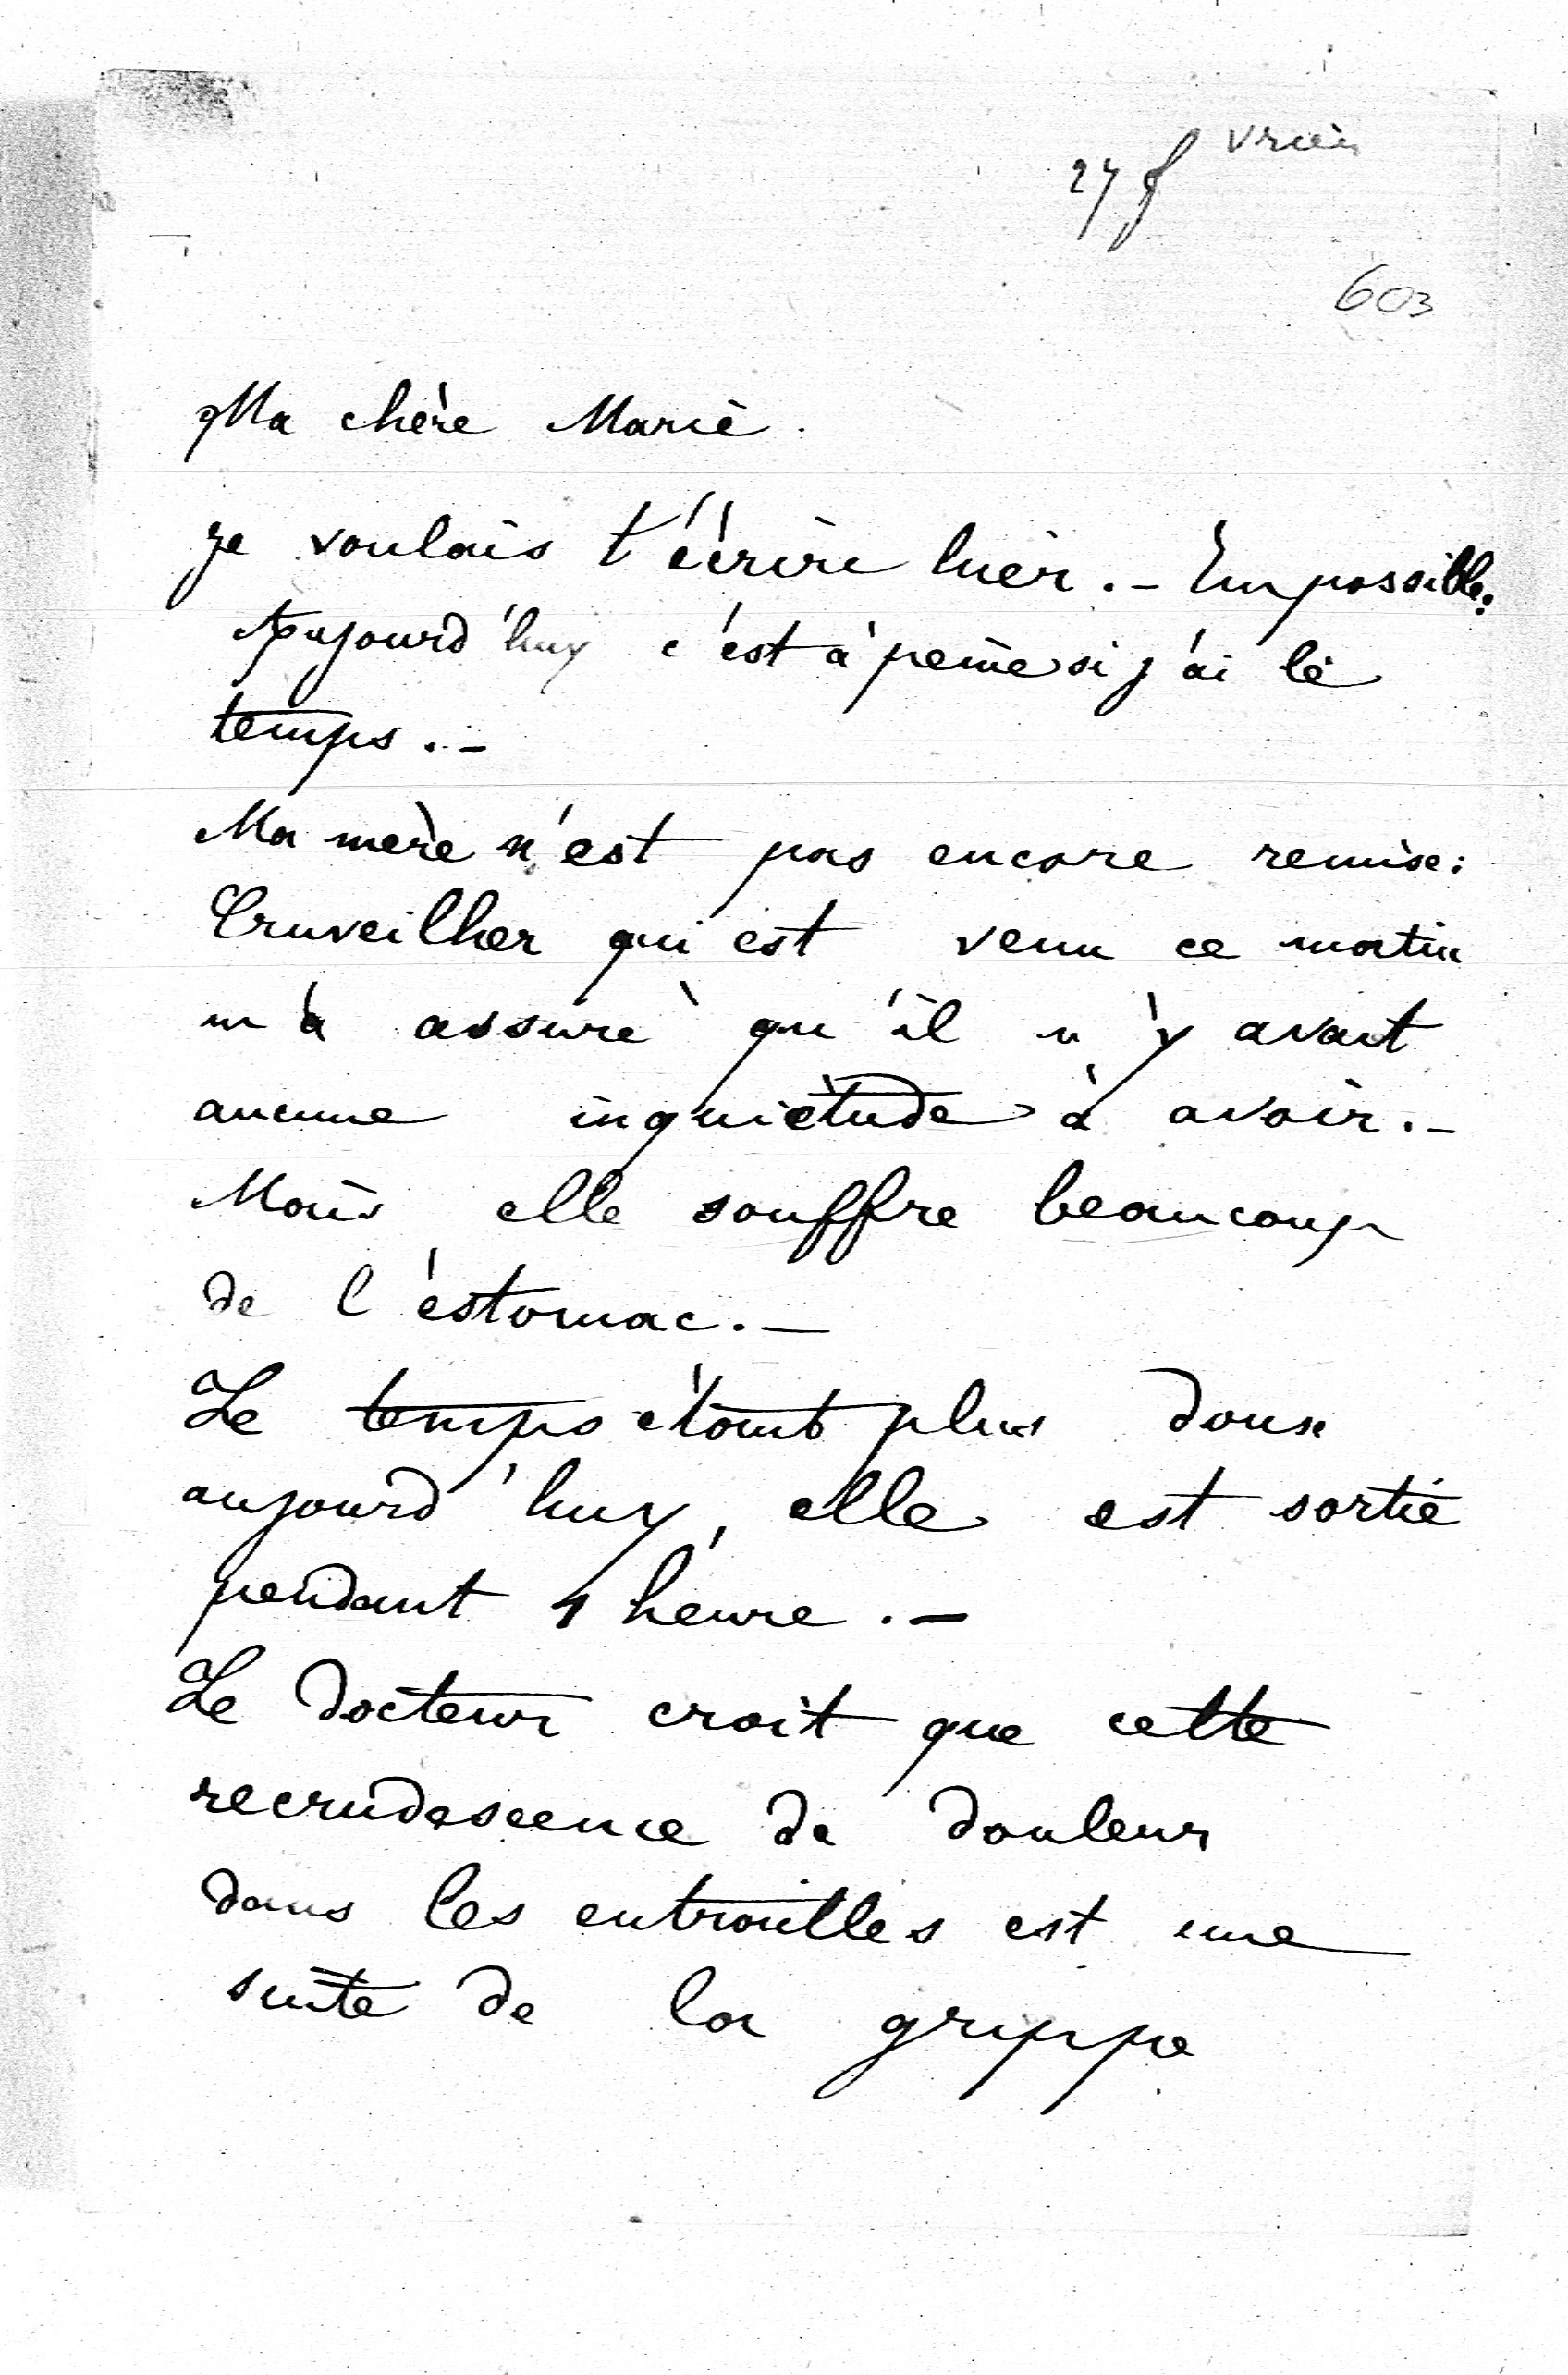 27 fvrier
603
Ma chère Marie.
je voulais t'écrire hier. _ Impossible.
Aujourd'huy c'est à peine si j'ai le
temps. _
Ma mère n'est pas encore remise:
Cruveilher qui est venu ce matin
m'a assuré qu'il n'y avait
aucune inquiétude à avoir. _
Mais elle souffre beaucoup
de l'estomac. _
Le temps étant plus doux
aujourd'huy, elle est sortie
pendant 1 heure. _
Le docteur croit que cette
recrudescence de douleur
dans les entrailles est une
suite de la grippe